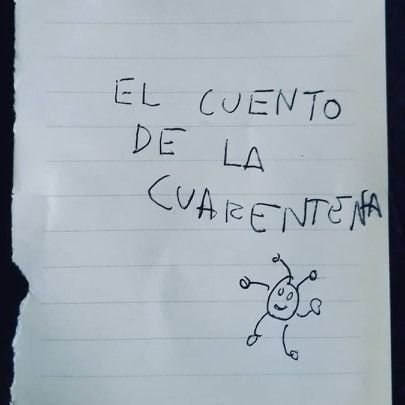 EL CUENTO
DE LA
CUARENTENA